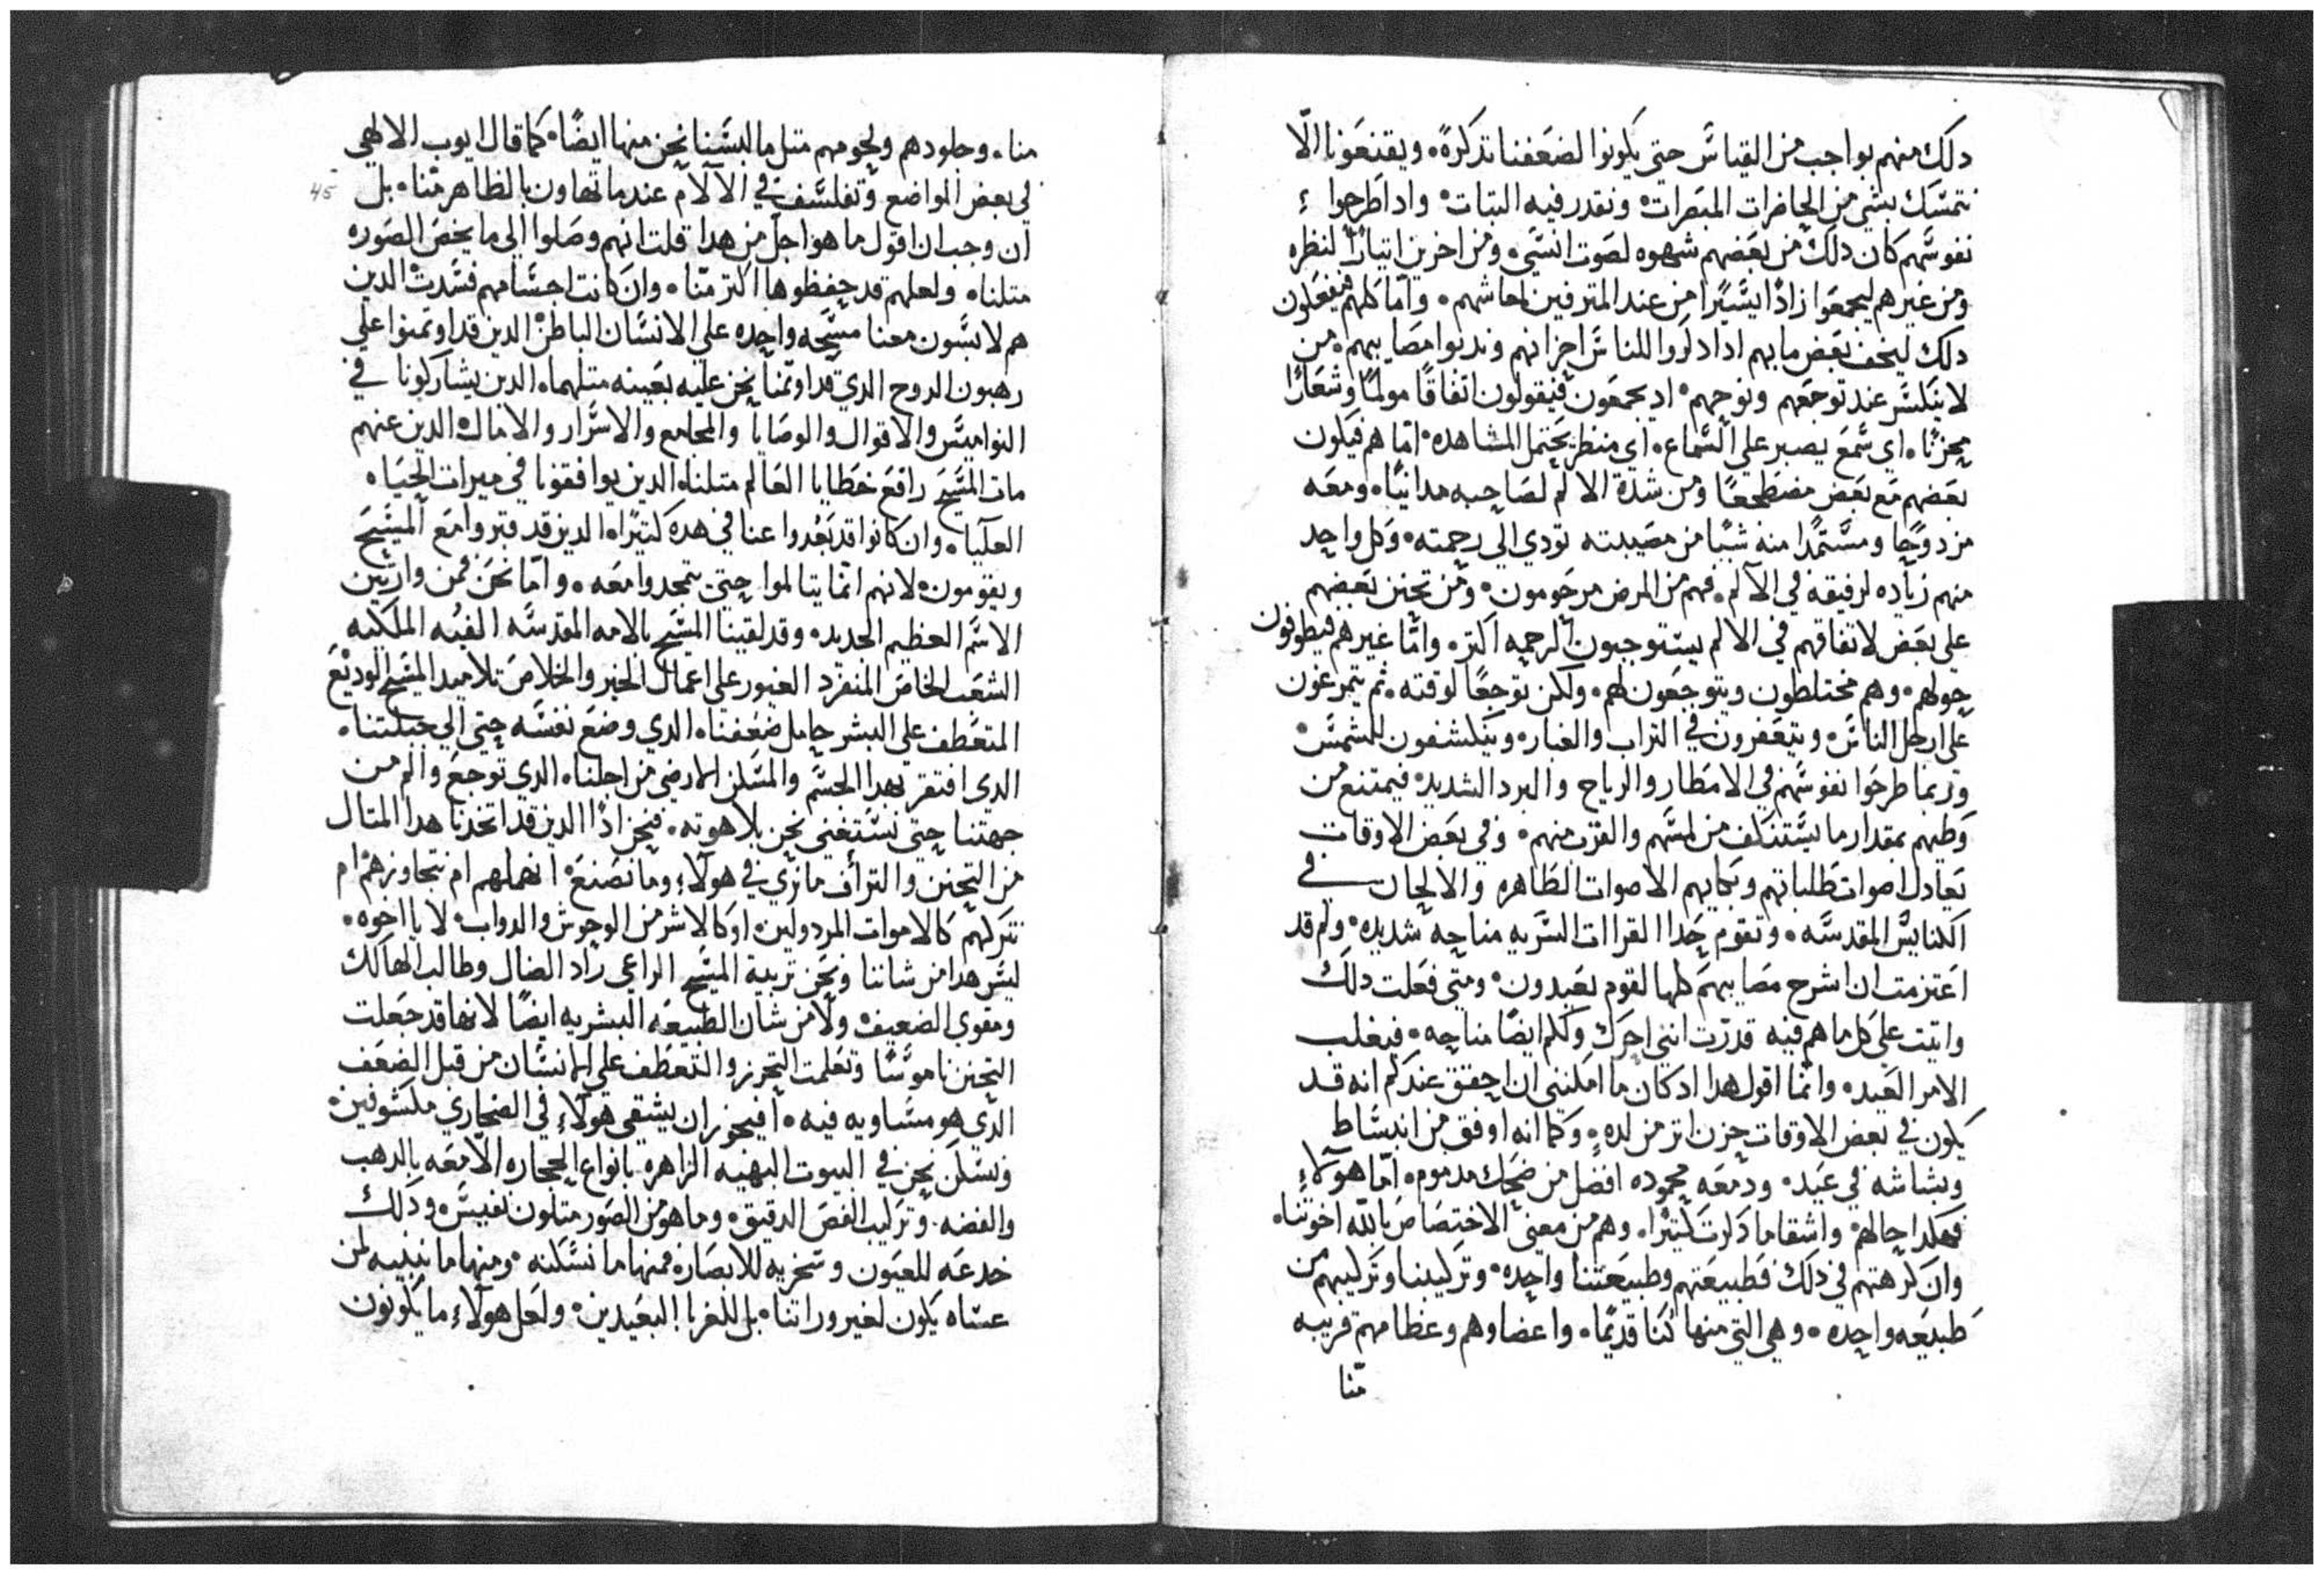 دلك منهم بواجب من القياس حتى يكونوا لضعفنا تدكرةً. ويقنعونا الّا
نتمسك بشي من الحاضرات المبصرات. ونقدر فيه التبات. وادا طرحوا
نفوسهم كان دلك من بعضهم شهوه لصوت انسي. ومن اخرين ايتاراً لنظره
ومن غيرهم ليجمعوا زادًا يسيرًا من عند المترفين لمعاشهم. وامّا كلهم فيفعلون
دلك ليخف بعض ما بهم ادا دكروا للناس احزانهم وندبوا مصايبهم. من
لا ينكسر عند توجعهم ونوحهم. اد يجمعون فيقولون اتفاقًا مولمًا وشعارًا
محزنًا. اي سمع يصبر على السماع. اي منظر يحتمل المشاهده. امّا هم فيكون
بعضهم مع بعض مضطجعًا ومن شدة الالم لصاحبه مدانيًا. ومعه
مزدوجًا ومستمدًا منه شيًا من مصيبته تودي الى رحمته. وكل واحد
منهم زياده لرفيقه في الالم. فهم من المرض مرحومون. ومن تحنن بعضهم
على بعض لاتفاقهم في الالم يستوجبون الرحمه اكتر. وامّا غيرهم فيطوفون
حولهم. وهم مختلطون ويتوجعون لهم. ولكن توجعًا لوقته. ثم يتمرغون
على ارجل الناس. ويتعفرون في التراب والغبار. ويتكشفون للشمس.
وربما طرحوا نفوسهم في الامطار والرياح والبرد الشديد. فيمتنع من
وطيهم بمقدار ما يستنكف من لمسهم والقرب منهم. وفي بعض الاوقات
تعادل اصوات طلباتهم وبكايهم الاصوات الطاهره والالحان في
الكنايس المقدسه. وتقوم حدا القراات السريه مناحه شديده. ولم قد
اعتزمت ان اشرح مصايبهم كلها لقوم يعيدون. ومتى فعلت دلك
واتيت على كل ما هم فيه قدرت انني احرك ولكم ايضًا مناحه. فيغلب
الامر العيد. وانما اقول هدا اد كان ما امكنني ان احقق عندكم انه قد
يكون في بعض الاوقات حزن اتر من لده. وكما انه اوفق من انبساط
وبشاشه في عيد. ودمعه محموده افضل من ضحك مدموم. امّا هولاءِ
فهكدا حالهم. واشقا ما دكرت كتيرًا. وهم من معنى الاختصاص بالله اخوتنا.
وان كرهتهم في دلك فطبيعتهم وطبيعتنا واحده. وتركيبنا وتركيبهم من
طبيعه واحده. وهي التي منها كنا قديمًا. واعضاوهم وعظامهم قريبه
منّا
منا. وجلودهم ولحومهم متل ما البسنا نحن منها ايضًا. كما قال ايوب الالهي
في بعض المواضع وتفلسف في الآلام عندما تهاون بالظاهر منّا. بل
ان وجب ان اقول ما هو اجل من هدا قلت انهم وصلوا الى ما يخص الصوره
متلنا. ولعلهم قد حفظوها اكتر منّا. وان كانت اجسامهم فسدت الدين
هم لابسون معنا مسيحه واحده على الانسان الباطن الدين قد اوتمنوا على
رهبون الروح الدي قد اوتمنا نحن عليه بعينه متلهما. الدين يشاركونا في
النواميس والاقوال والوصايا والمجامع والاسرار والامال. الدين عنهم
مات المسيح رافع خطايا العالم متلنا. الدين يوافقونا في ميرات الحياه
العليا. وان كانوا قد بعدوا عنا في هده كتيرًا. الدين قد قبروا مع المسيح
ويقومون. لانهم انما يتالموا حتى يتمجدوا معه. وامّا نحن فمن وارتين
الاسم العظيم الجديد. وقد لقبنا المسيح بالامه المقدسه الفيه الملكيه
الشعب الخاص المنفرد الغيور على اعمال الخير والخلاص تلاميد المسيح الوديع
المتعطف على البشر حامل ضعفنا. الدي وضع نفسه حتى الى جبلتنا.
الدي افتقر بهدا الجسم والمسكن الارضي من اجلنا. الدي توجع والم من
جهتنا حتى نستغني نحن بلاهوته. فنحن ادًا الدين قد اتخدنا هدا المتال
من التحنن والتراف ما نرى في هولاءِ وما نصنع. انهملهم ام نتجاوزهم ام
نتركهم كالاموات المردولين. او كالاشر من الوحوش والدواب. لا يا اخوه.
ليس هدا من شاننا ونحن تربية المسيح الراعي راد الضال وطالب الهالك
ومقوي الضعيف. ولا من شان الطبيعه البشريه ايضًا لانها قد جعلت
التحنن ناموسًا وتعلمت التحرز والتعطف على الانسان من قبل الضعف
الدي هو مساويه فيه. افيجوز ان يشقى هولاءِ في الصحاري مكشوفين.
ونسكن نحن في البيوت البهيه الزاهره بانواع الحجاره اللامعه بالدهب
والفضه. وتركيب الفص الدقيق. وما هو من الصور متلون نفيس. ودلك
خدعه للعيون وسخريه للابصار. فمنها ما نسكنه. ومنها ما نبنيه لمن
عساه يكون لغير وراتنا. بل للغربا البعيدين. ولعل هولاءِ ما يكونون
45